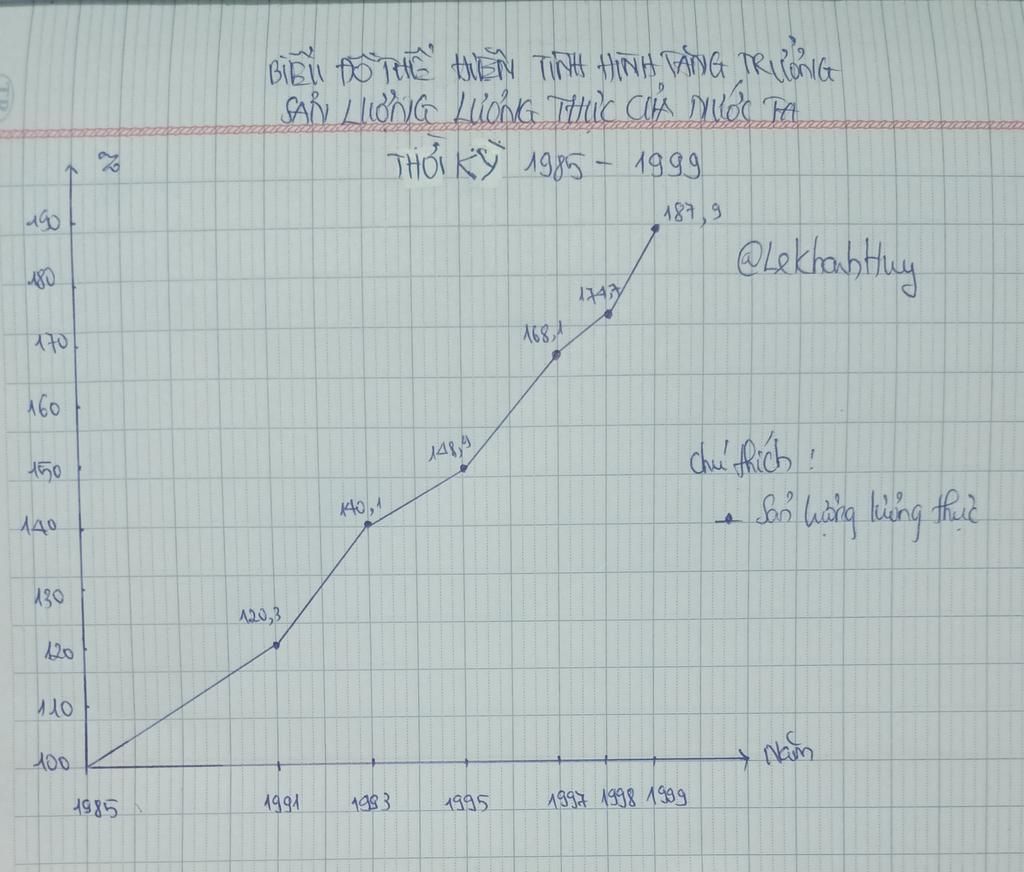 BIỂU ĐỒ THỂ HIỆN TÌNH HÌNH TĂNG TRƯỞNG
SẢN LƯỢNG LƯƠNG THỰC CỦA NƯỚC TA
THỜI KỲ 1985 - 1999
%
190
180
170
160
150
140
130
120
110
100
187,9
174,7
168,1
148,9
140,1
120,3
@LekhanhHuy
Chú thích:
Sản lượng lương thực
Năm
1985 1991 1993 1995 1997 1998 1999